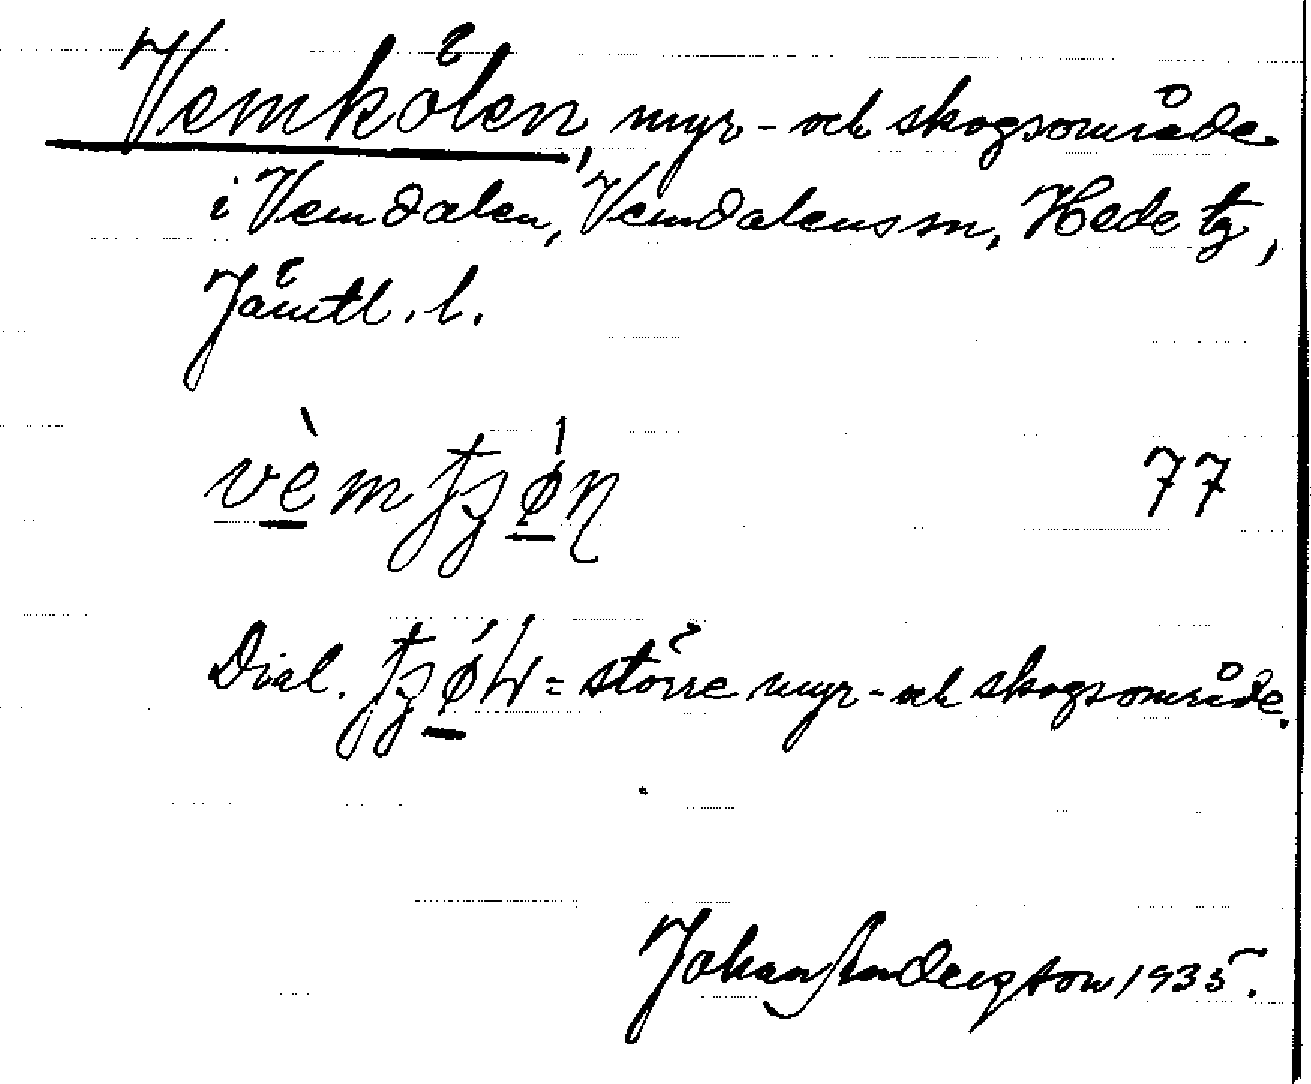 Vemkölen, myr- och skogsområde
i Vemdalen, Vemdalens sn, Hede tg,
Jämtl. l.
77
Dial. = större myr- och skogsområde.
Johan Andersson 1935.